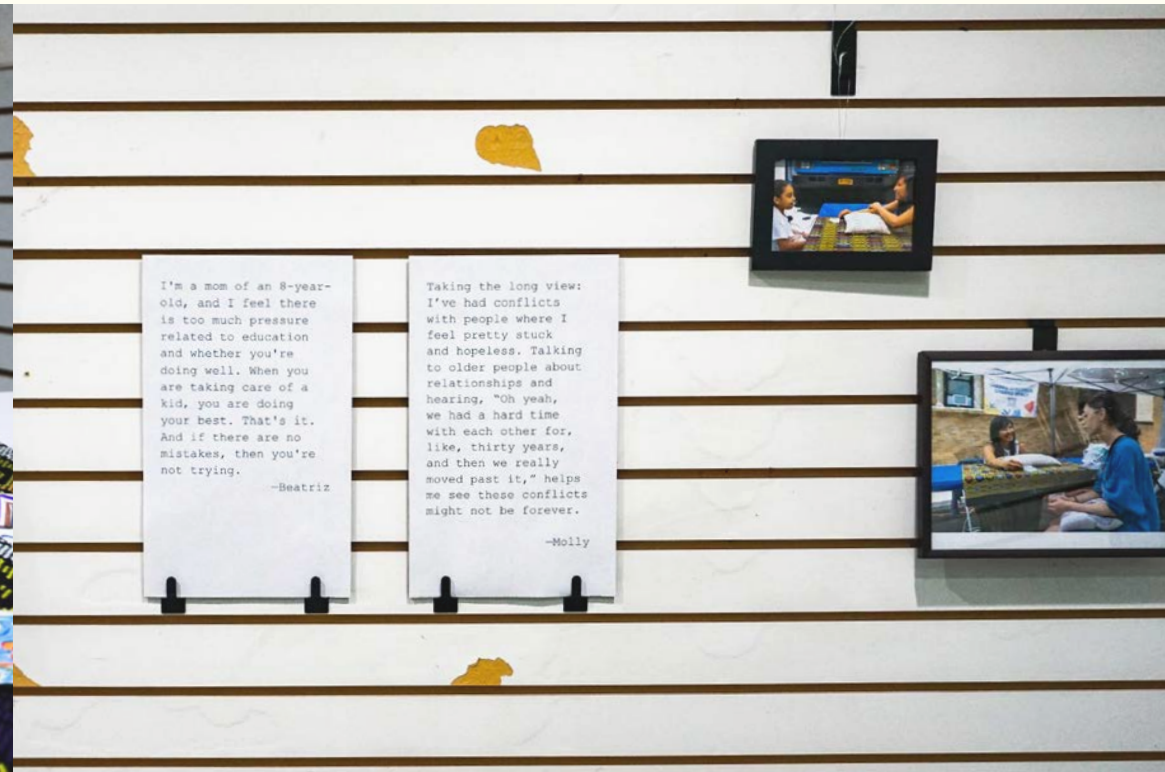 I'm a mom of an 8-year-
old, and I feel there
is too much pressure
related to education
and whether you're
doing well. When you
are taking care of a
kid, you are doing
your best. That's it.
And if there are no
mistakes, then you're
not trying.
—Beatriz
Taking the long view:
I've had conflicts
with people where I
feel pretty stuck
and hopeless. Talking
to older people about
relationships and
hearing, "Oh yeah,
we had a hard time
with each other for,
like, thirty years,
and then we really
moved past it," helps
me see these conflicts
might not be forever.
—Molly